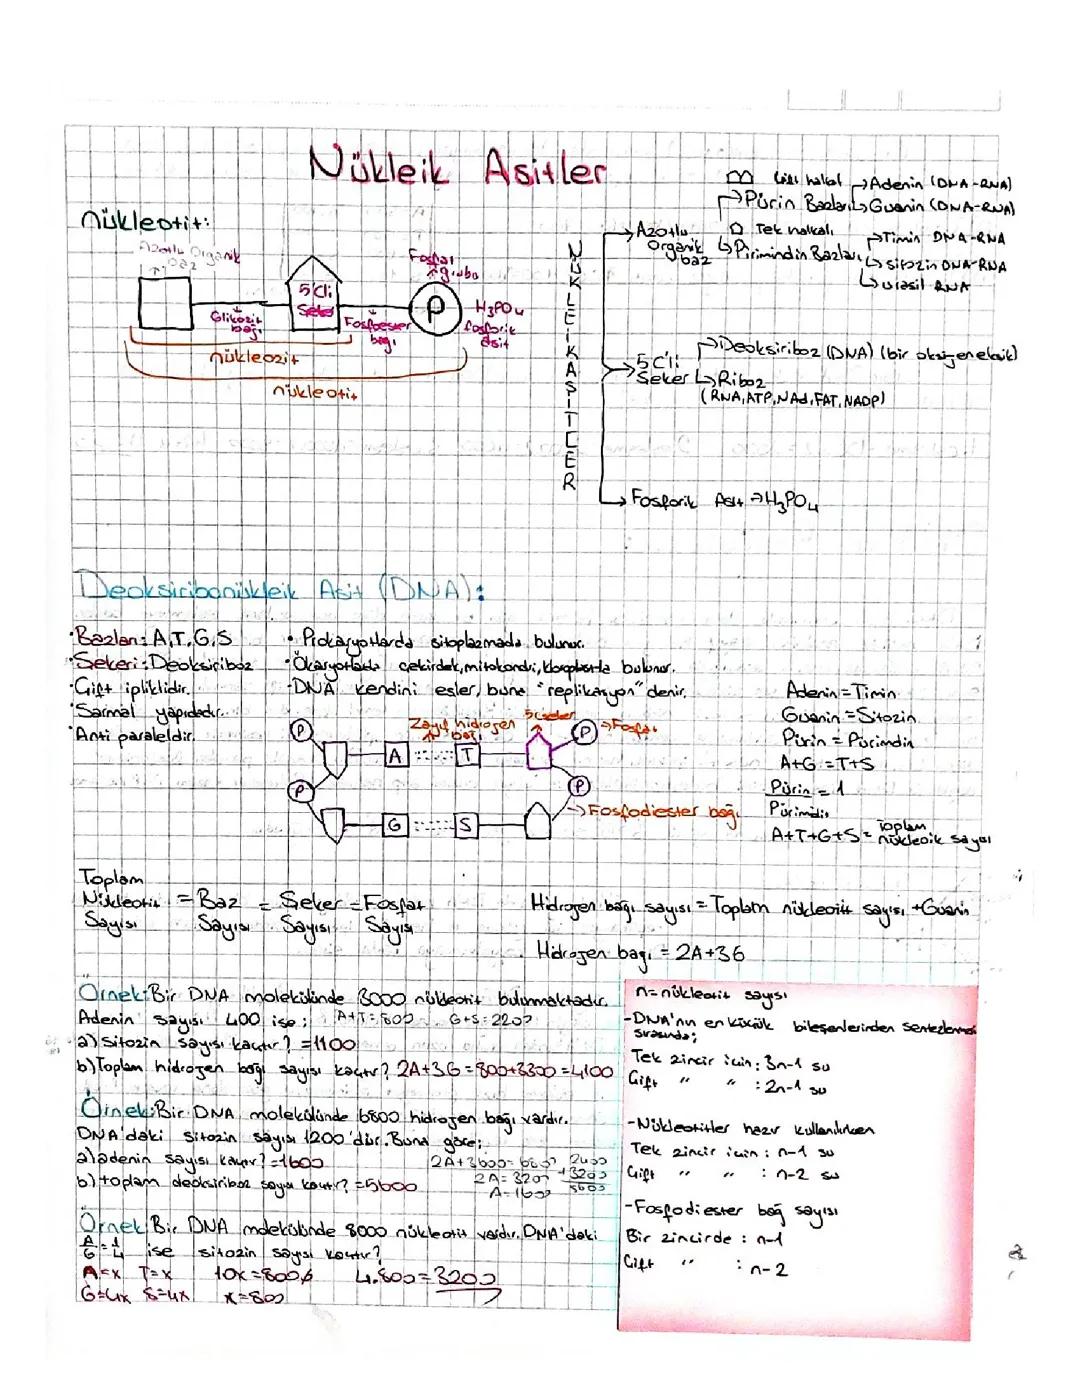 Nükleik Asitler
nükleotit:
Azotlu Organik
baz
5 Cli
Şeker
Fosfat
grubu
P
H3PO4
fosforik
asit
Glikozit
bağı
Fosfoester
bağı
nükleozit
nükleotit
NÜKLEİK ASİTLER
Azotlu
Organik
baz
Çift halkalı
Pürin Bazları
Adenin (DNA-RNA)
Guanin (DNA-RNA)
Tek halkalı
Pirimindin Bazları
Timin DNA-RNA
Sitozin DNA-RNA
Urasil RNA
5 C'li
Şeker
Deoksiriboz (DNA) (bir oksijen eksik)
Riboz
(RNA, ATP, NAd, FAT, NADP)
Fosforik Asit → H3PO4
Deoksiribonükleik Asit (DNA):
•Bazları: A,T,G,S
•Şekeri: Deoksiriboz
•Çift ipliklidir.
•Sarmal yapıdadır.
•Anti paraleldir.
• Prokaryotlarda sitoplazmada bulunur.
•Ökaryotlarda çekirdek, mitokondri, kloroplastta bulunur.
-DNA kendini eşler, buna "replikasyon" denir.
Zayıf hidrojen
bağı
Şeker
P
P → Fosfat
A
T
P
P
→ Fosfodiester bağı
G
S
Adenin = Timin
Guanin = Sitozin
Pürin = Pürimdin
A+G = T+S
Pürin = 1
Pürimdin
A+T+G+S = Toplam
nükleoik sayısı
Toplam
Nükleotit = Baz = Şeker = Fosfat
Sayısı Sayısı Sayısı Sayısı
Hidrojen bağı sayısı = Toplam nükleotit sayısı + Guanin
Hidrojen bağı = 2A+3G
Örnek: Bir DNA molekülünde 3000 nükleotit bulunmaktadır.
Adenin sayısı 400 ise; A+T=800 G+S=2200
a) Sitozin sayısı kaçtır? =1100
b) Toplam hidrojen bağı sayısı kaçtır? 2A+3G=800+3300=4100
Örnek: Bir DNA molekülünde 6800 hidrojen bağı vardır.
DNA'daki sitozin sayısı 1200'dür. Buna göre;
a) adenin sayısı kaçtır? =1600
b) toplam deoksiriboz sayısı kaçtır? =5600
2A+3600=6800
2A=3200
A=1600
2400
+3200
5600
Örnek: Bir DNA molekülünde 8000 nükleotit vardır. DNA'daki
A/G = 1/4 ise sitozin sayısı kaçtır?
A=x T=x 10x=8000 4.800=3200
G=4x S=4x x=800
n= nükleotit sayısı
-DNA'nın en küçük bileşenlerinden sentezlenmesi
sırasında;
Tek zincir için: 3n-1 su
Çift " " : 2n-1 su
-Nükleotitler hazır kullanılırken
Tek zincir için: n-1 su
Çift " " : n-2 su
-Fosfodiester bağ sayısı
Bir zincirde: n-1
Çift " : n-2